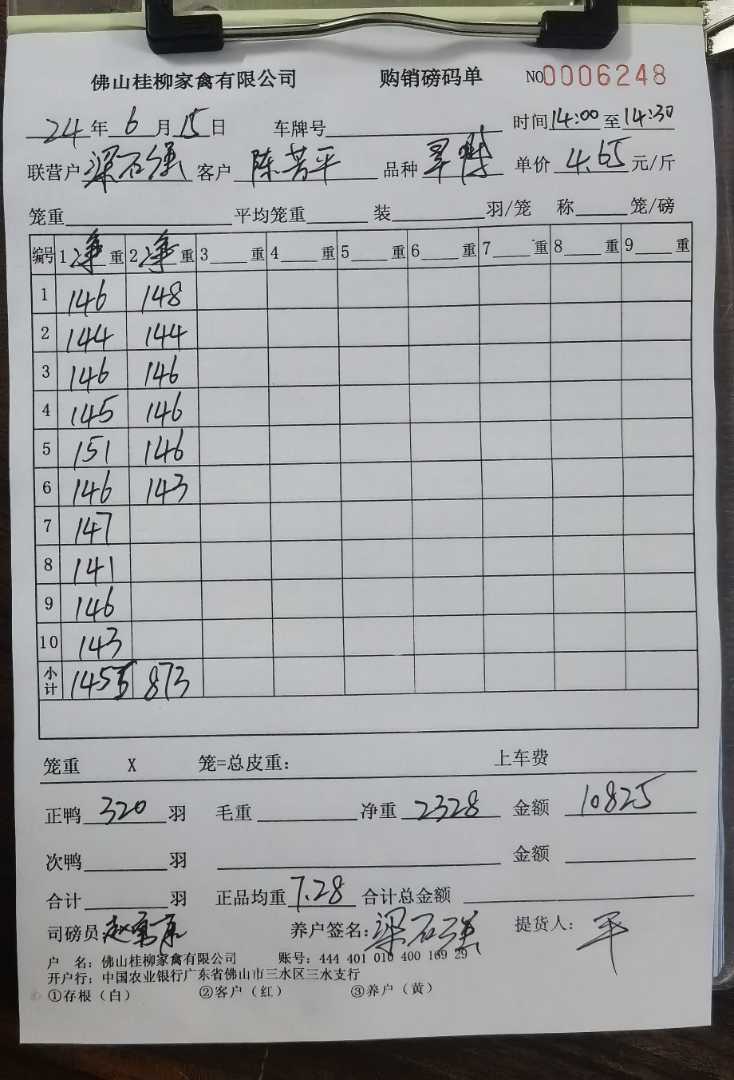 佛山桂柳家禽有限公司 购销磅码单 NO0006248
24年6月15日 车牌号 时间14:00至14:30
联营户 梁石强 客户 陈芳平 品种 单价 4.65 元/斤
笼重 平均笼重 装 羽/笼 称 笼/磅
编号 1净重 2净重 3 重 4 重 5 重 6 重 7 重 8 重 9 重
1 146 148
2 144 144
3 146 146
4 145 146
5 151 146
6 146 143
7 147
8 141
9 146
10 143
小计 1455 873
笼重 X 笼=总皮重: 上车费
正鸭 320 羽 毛重 净重 2328 金额 10825
次鸭 羽 金额
合计 羽 正品均重 7.28 合计总金额
司磅员 养户签名: 梁石强 提货人: 平
户 名: 佛山桂柳家禽有限公司 账号: 444 401 010 400 169 29
开户行: 中国农业银行广东省佛山市三水区三水支行
①存根(白) ②客户(红) ③养户(黄)